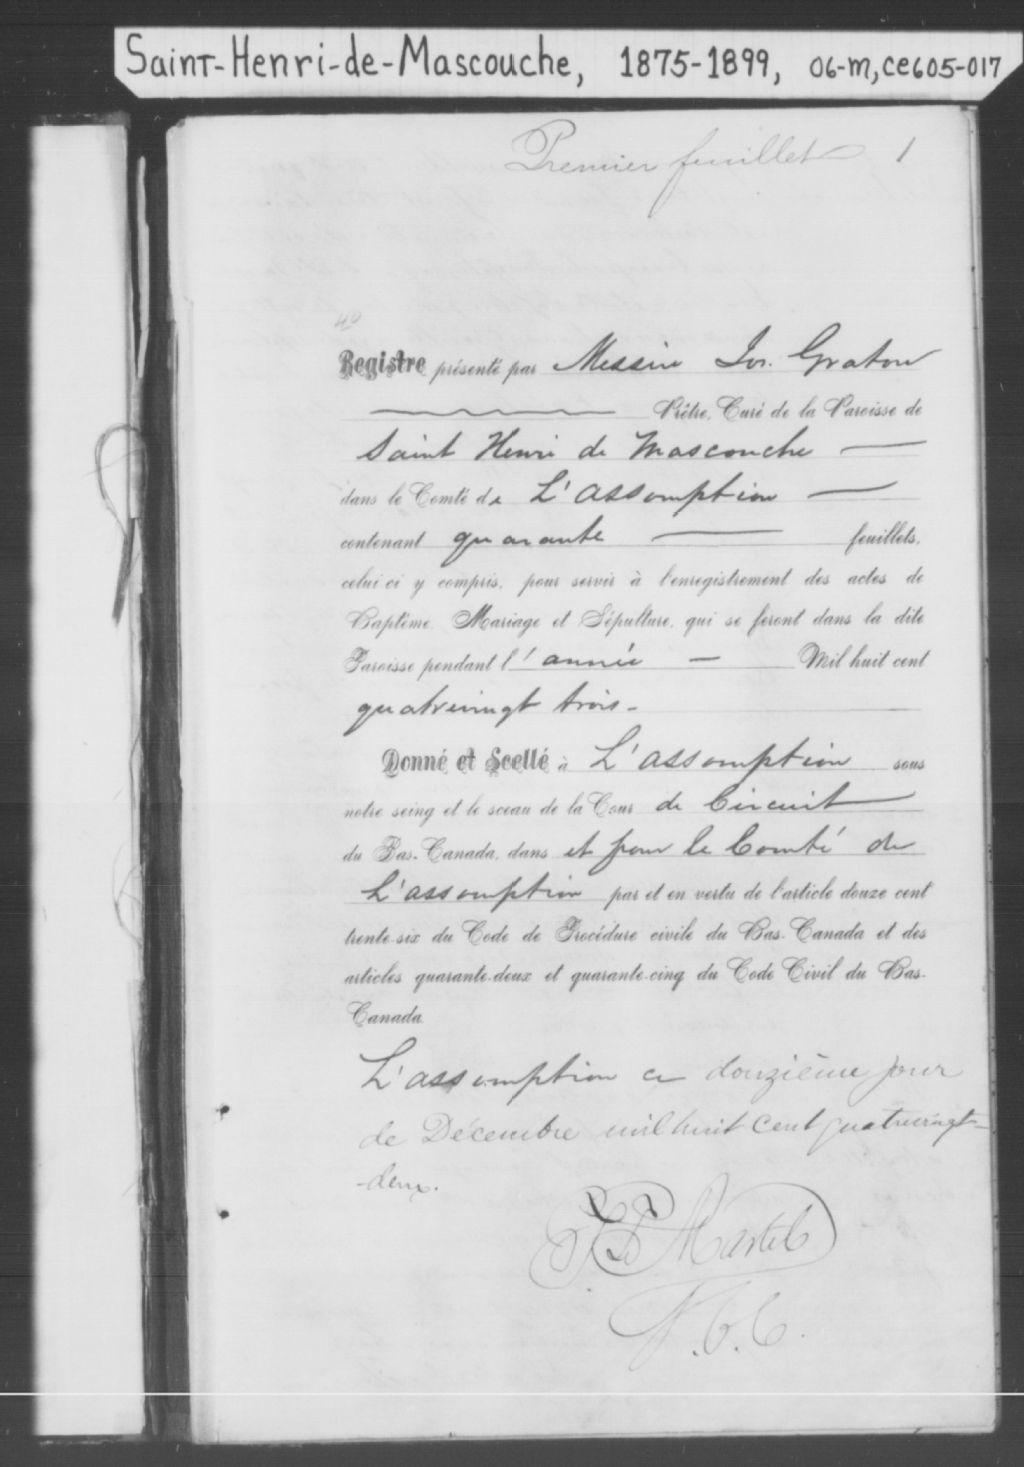 Saint-Henri-de-Mascouche, 1875-1899, 06-M,CE605-017
Premier feuillet 1
40
Registre présenté par Messire Jos. Graton
Prêtre, Curé de la Paroisse de
Saint Henri de Mascouche —
dans le Comté de L'assomption —
contenant quarante — feuillets,
celui ci y compris, pour servir à l'enregistrement des actes de
Baptême Mariage et Sépulture, qui se feront dans la dite
Paroisse pendant l'année — Mil huit cent
quatrevingt trois -
Donné et Scellé à L'assomption sous
notre seing et le sceau de la Cour de Circuit
du Bas-Canada, dans et pour le Comté de
L'assomption par et en vertu de l'article douze cent
trente-six du Code de Procédure civile du Bas-Canada et des
articles quarante-deux et quarante-cinq du Code Civil du Bas-
Canada
L'assomption ce douzième jour
de Décembre mil huit cent quatrevingt-
-deux.
Martel